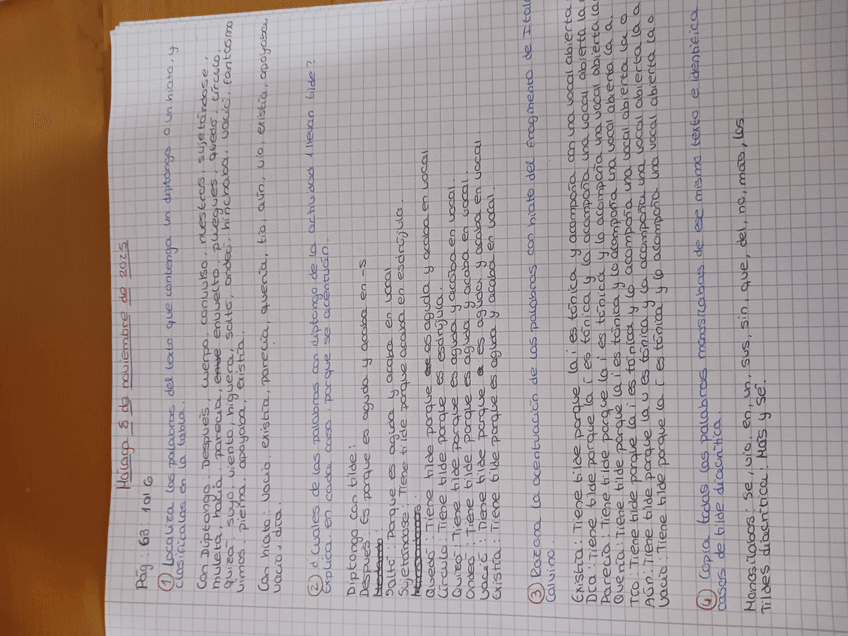 Málaga 8 de noviembre de 2025
Pág 68 1 al 6
① Localiza las palabras del texto que contenga un diptongo o un hiato, y
clasifícalas en la tabla.
Con Diptongo: Después, cuerpo, convulso, nuestras, sujetándose,
muleta, hacia, parecía, envuelto, pliegues, quedó, círculo,
quizá, suyo, viento, higuera, saltó, ondeó, hinchaba, vació, fantasma
vimos, pierna, apoyaba, existía.
Con hiato: vacío, existía, parecía, quería, tío, aún, vio, existía, apoyaba
vacío, día.
② ¿Cuáles de las palabras con diptongo de la actividad 1 llevan tilde?
Explica, en cada caso, porque se acentúan.
Diptongo con tilde:
Después: Es porque es aguda y acaba en -s
Saltó: Porque es aguda y acaba en vocal
Sujetándose: Tiene tilde porque acaba en esdrújula.
Quedó: Tiene tilde porque es aguda y acaba en vocal
Círculo: Tiene tilde porque es esdrújula.
Quizá: Tiene tilde porque es aguda y acaba en vocal.
Ondeó: Tiene tilde porque es aguda y acaba en vocal.
Vació: Tiene tilde porque es aguda y acaba en vocal
Existía: Tiene tilde porque es aguda y acaba en vocal.
③ Razona la acentuación de las palabras con hiato del fragmento de Italo
Calvino.
Existía: Tiene tilde porque la í es tónica y acompaña con una vocal abierta
Día: Tiene tilde porque la í es tónica y lo acompaña una vocal abierta la
Parecía: Tiene tilde porque la í es tónica y lo acompaña una vocal abierta la
Quería: Tiene tilde porque la í es tónica y lo acompaña una vocal abierta la a.
Tío: Tiene tilde porque la í es tónica y lo acompaña una vocal abierta la o
Aún: Tiene tilde porque la u es tónica y la acompaña una vocal abierta la a
Vacío: Tiene tilde porque la í es tónica y lo acompaña una vocal abierta la o
④ Copia todas las palabras monosílabas de ese mismo texto e identifica
casos de tilde diacrítica.
Monosílabos: Se, vio, en, un, sus, sin, que, del, no, más, las.
Tildes diacrítica: Más y sé.